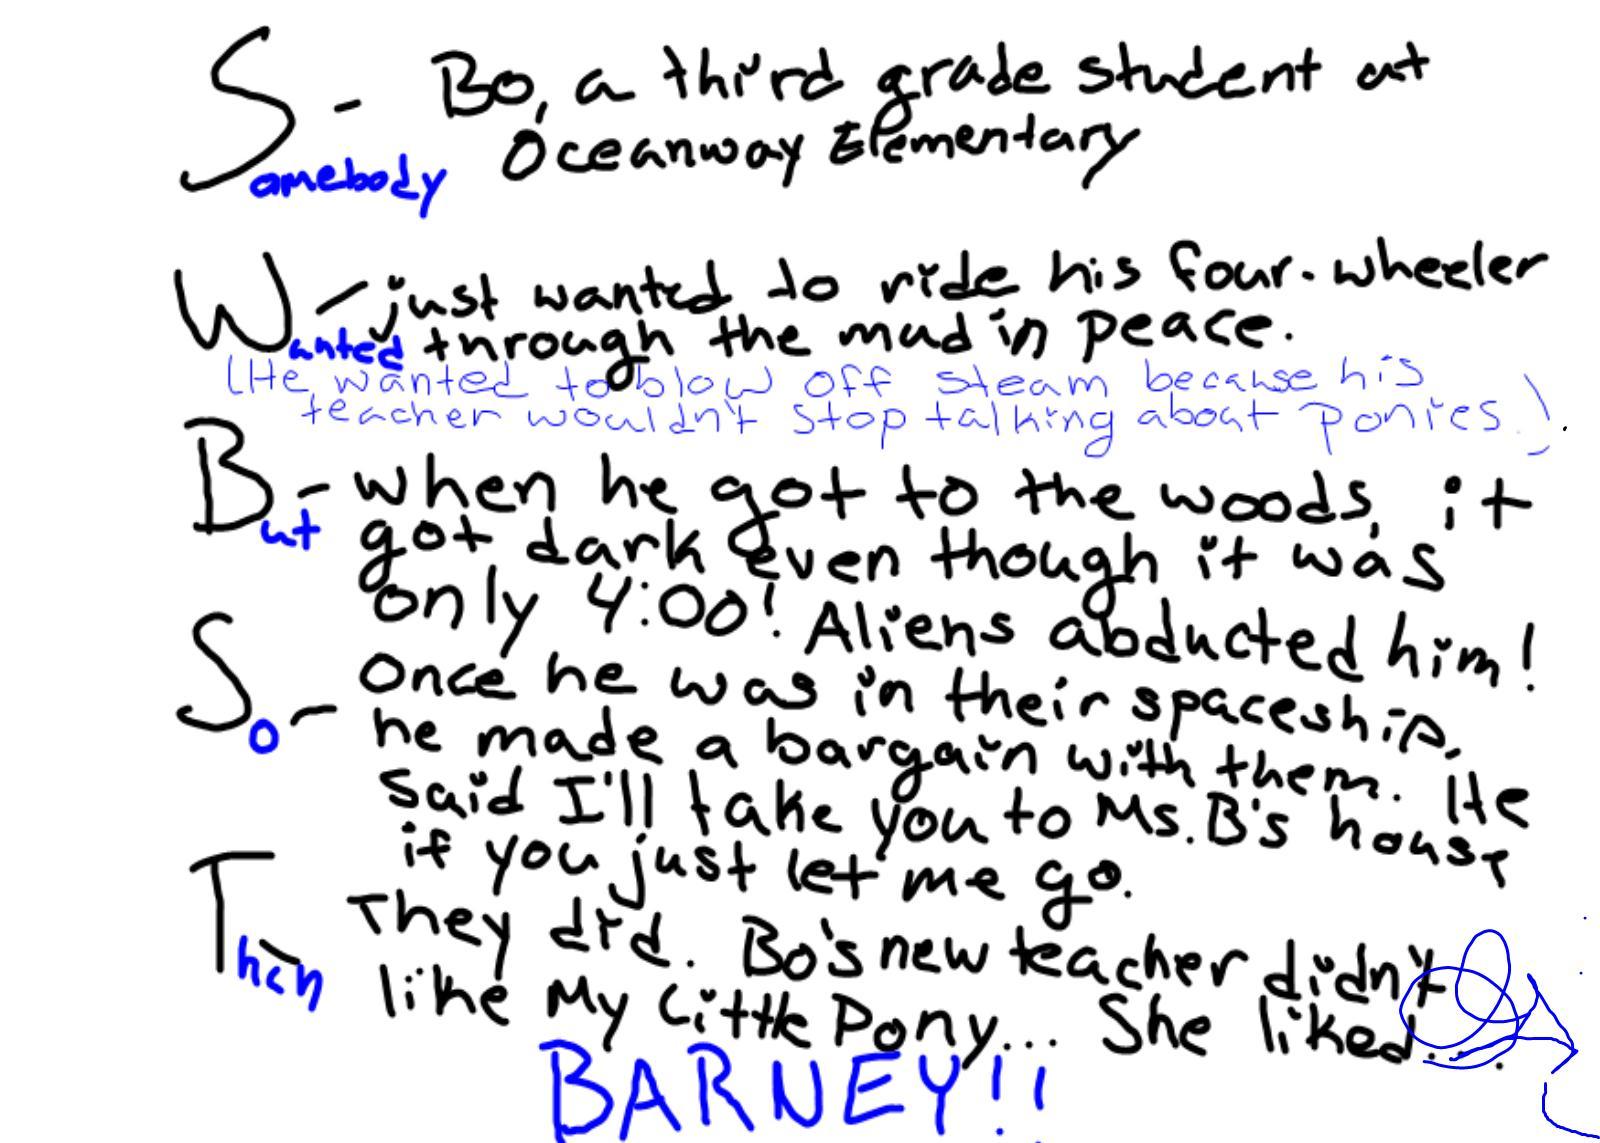 S- Bo, a third grade student at
Somebody Oceanway Elementary
W- just wanted to ride his four-wheeler
Wanted through the mud in peace.
(He wanted to blow off steam because his
teacher wouldn't stop talking about ponies.)
B- when he got to the woods, it
But got dark even though it was
only 4:00! Aliens abducted him!
S- Once he was in their spaceship,
So he made a bargain with them. He
said I'll take you to Ms. B's house
if you just let me go.
T- They did. Bo's new teacher didn't
Then like My Little Pony... She liked....
BARNEY!!